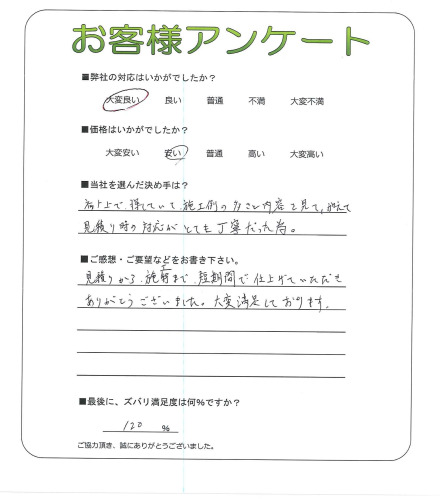 お客様アンケート
■弊社の対応はいかがでしたか?
大変良い 良い 普通 不満 大変不満
■価格はいかがでしたか?
大変安い 安い 普通 高い 大変高い
■当社を選んだ決め手は?
上で、探していて、施工例の多さと内容を見て。加えて
見積り時の対応がとても丁寧だった為。
■ご感想・ご要望などをお書き下さい。
見積りから、施工まで、短期間で仕上げていただき
ありがとうございました。大変満足しております。
■最後に、ズバリ満足度は何%ですか?
120 %
ご協力頂き、誠にありがとうございました。